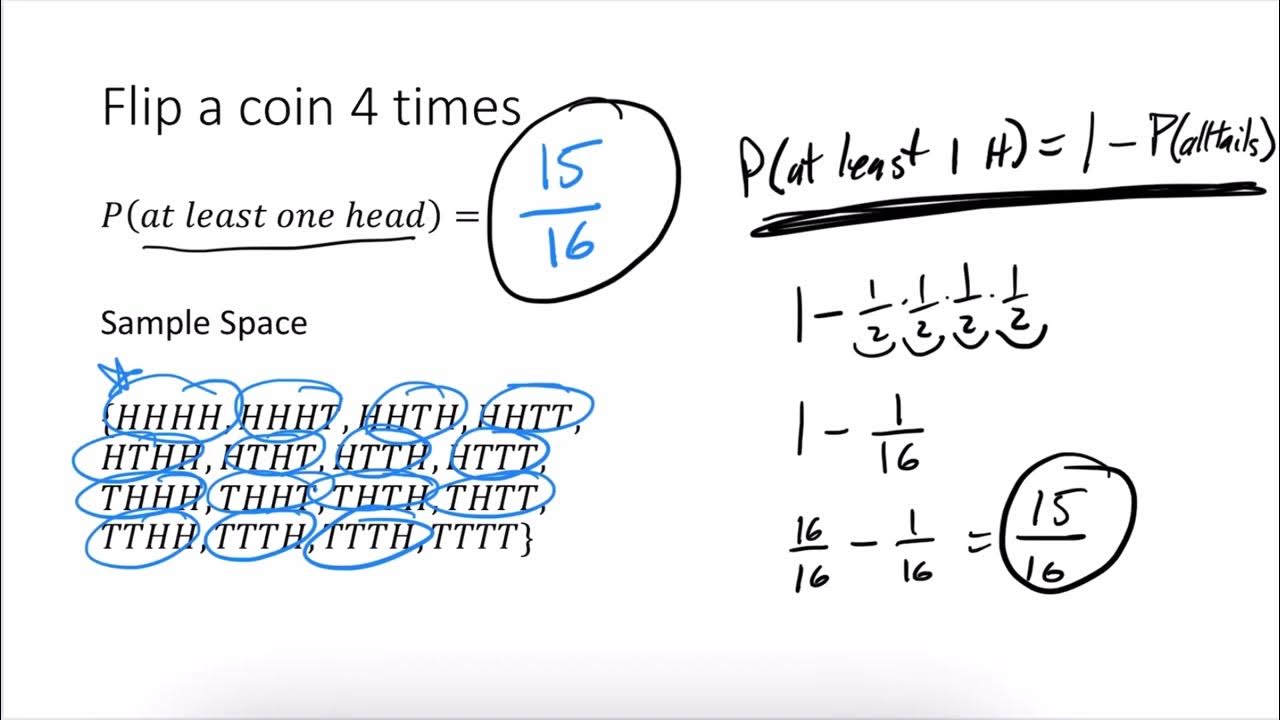 Flip a coin 4 times
P(at least one head) = 15/16
Sample Space
{HHHH, HHHT, HHTH, HHTT,
HTHH, HTHT, HTTH, HTTT,
THHH, THHT, THTH, THTT,
TTHH, TTTH, TTTH, TTTT}
P(at least 1 H) = 1 - P(all tails)
1 - 1/2 · 1/2 · 1/2 · 1/2
1 - 1/16
16/16 - 1/16 = 15/16